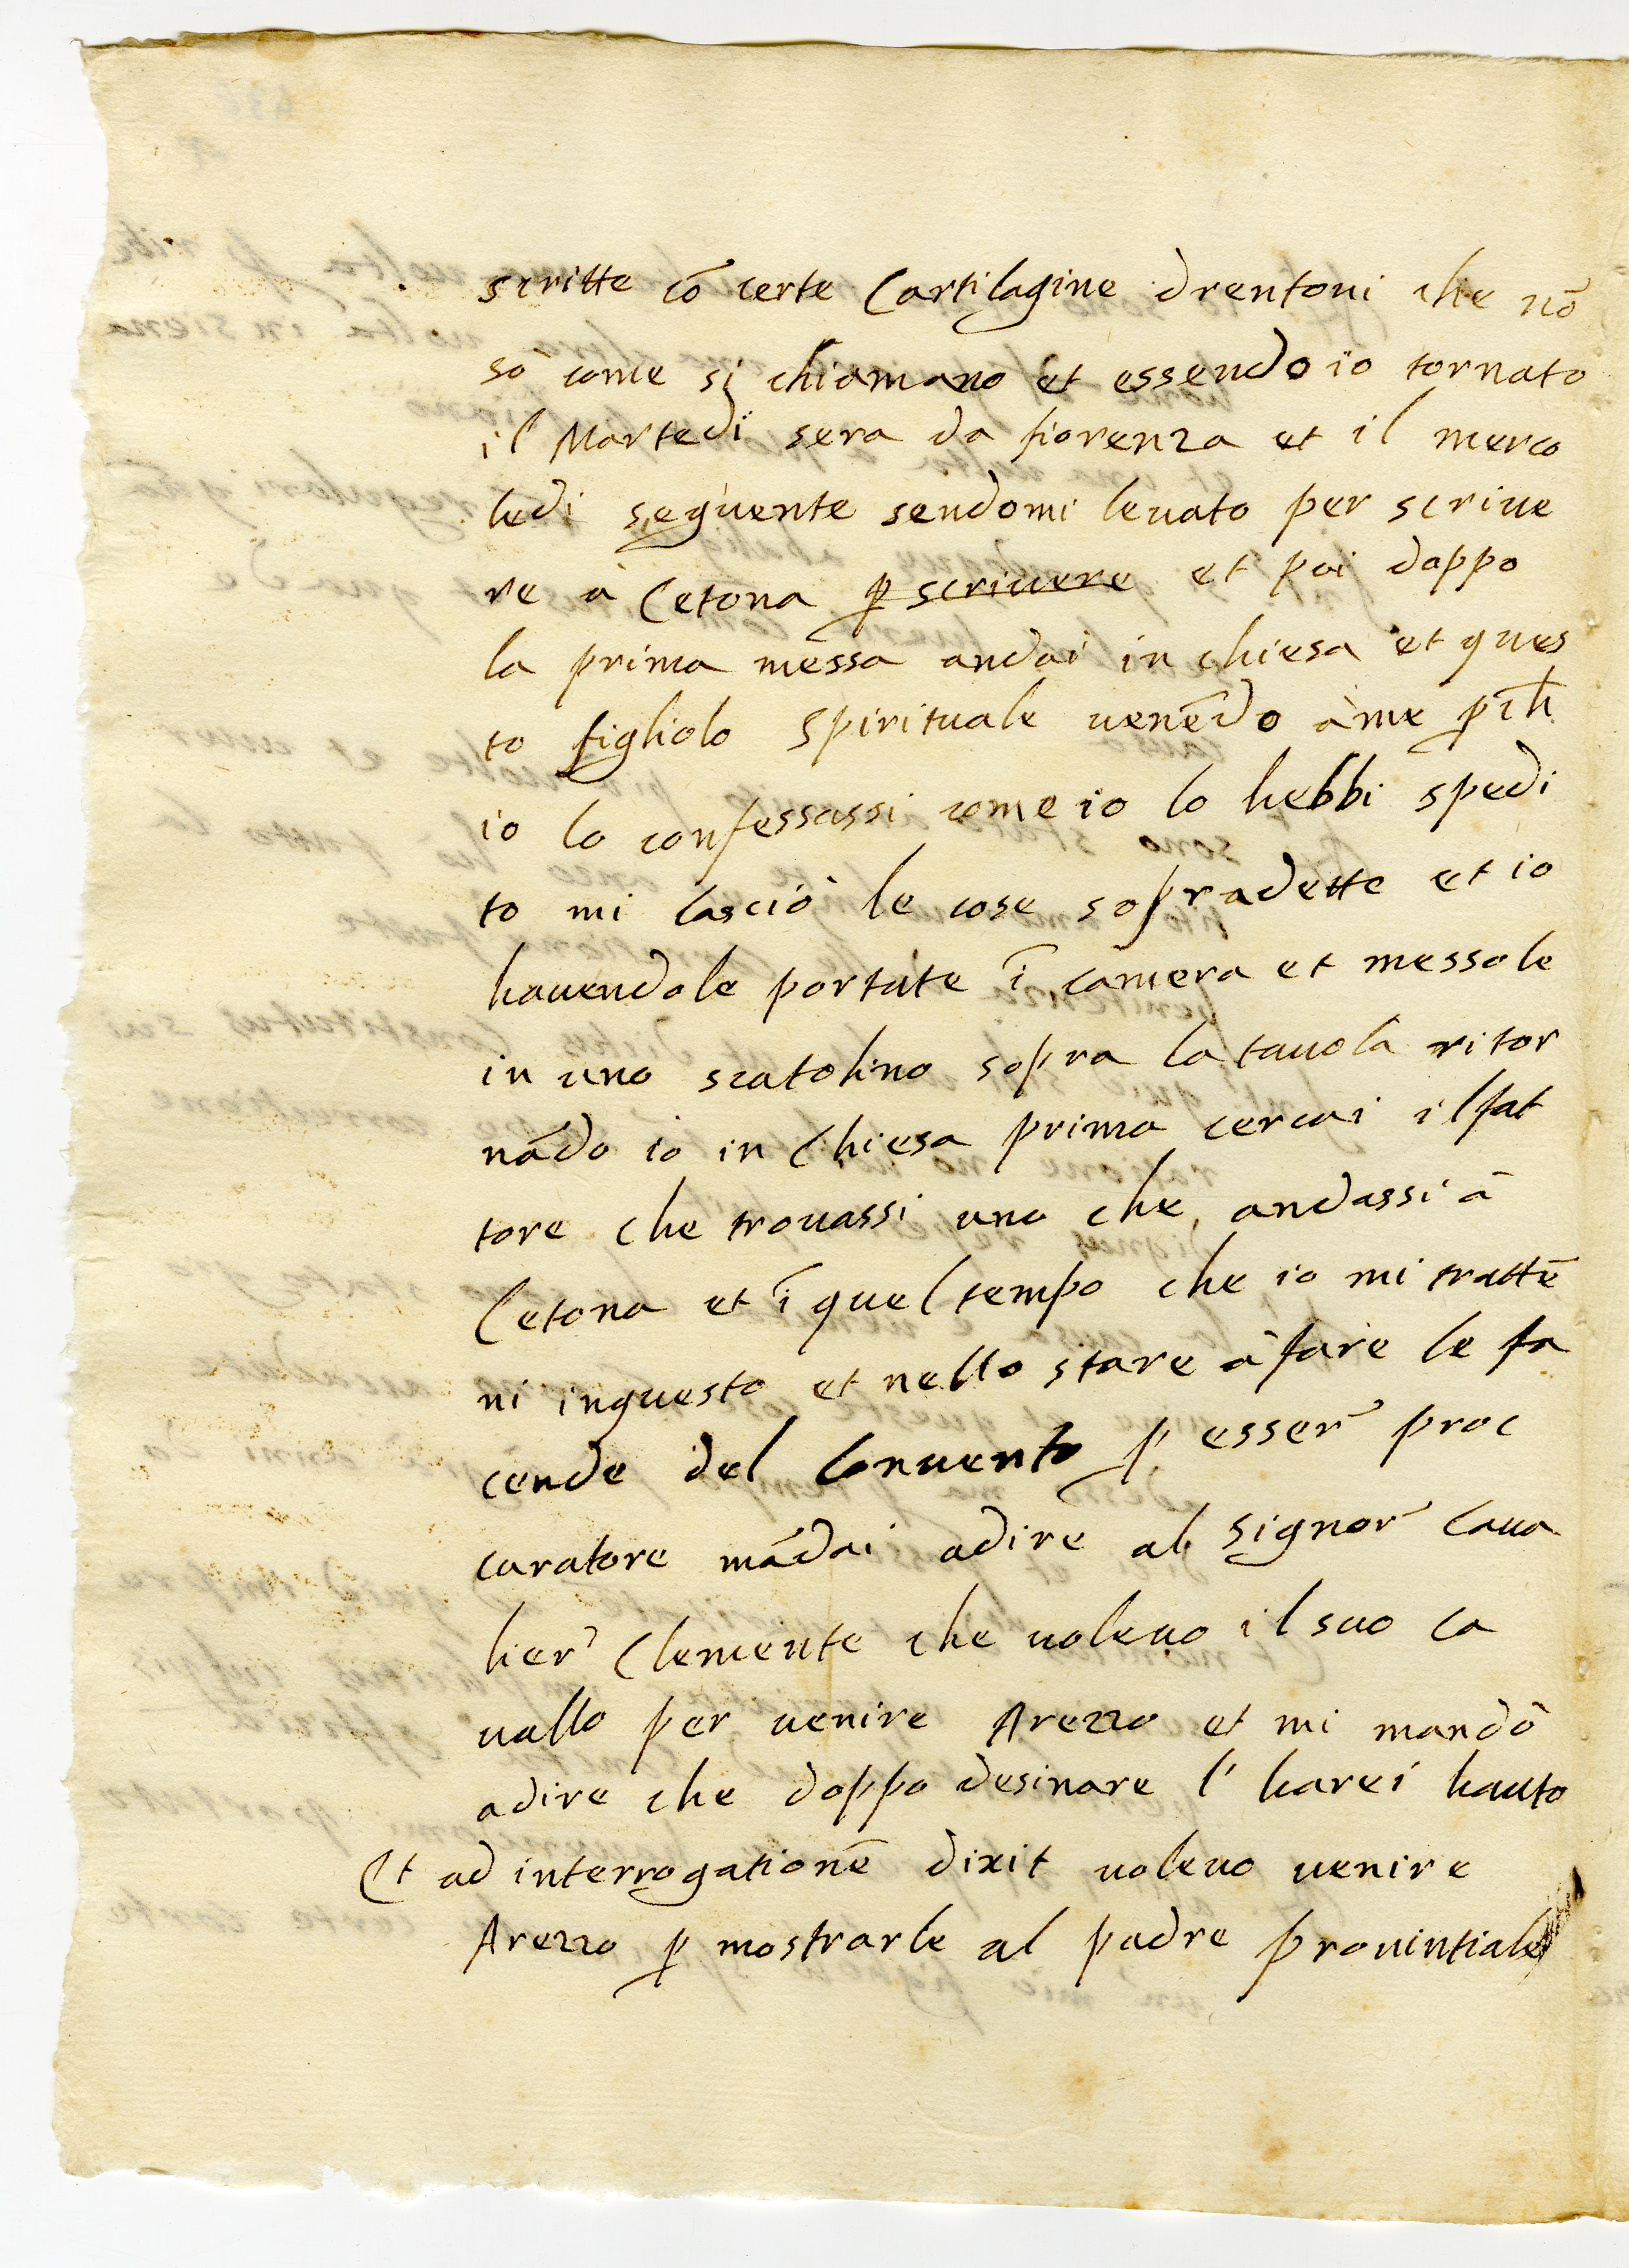 scritte cō certe Cartilagine drentovi che nō
sò come si chiamano et essendo io tornato
il Martedi sera da fiorenza et il merco
ledi seguente sendomi leuato per scriue
re à Cetona ꝑ scriuere et poi doppo
la prima messa andai in chiesa et ques
to figliolo spirituale uenēdo à me ꝑch
io lo confessassi come io lo hebbi spedi
to mi lasciò le cose sopradette et io
hauendole portate ī camera et messole
in uno scatolino sopra la tauola ritor
nādo io in Chiesa prima cercai il fat
tore che trouassi uno che andassi à
Cetona et ī quel tempo che io mi trattē
ni in questo et nello stare à fare le fa
cende del Conuento ꝑ esser proc
curatore mādai adire al signor Caua
lier Clemente che uoleuo il suo ca
uallo per uenire Arezzo et mi mandò
adire che doppo desinare l' harei hauto
Et ad interrogationē dixit uoleuo uenire
Arezzo ꝑ mostrarle al padre prouintiale